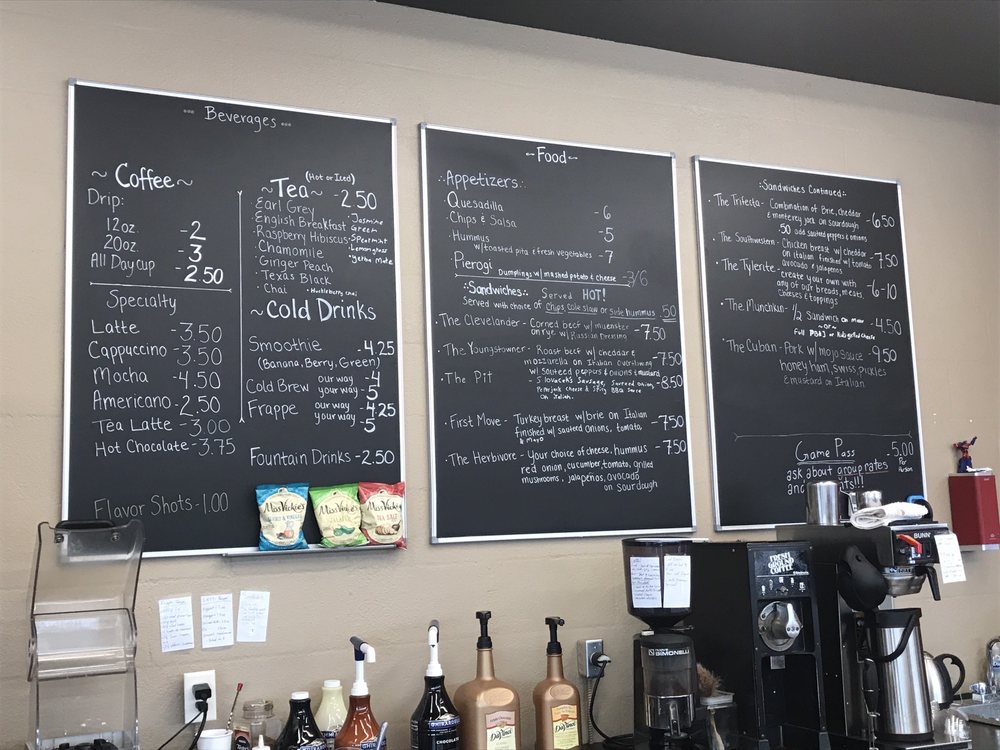 Beverages
~ Coffee ~
Drip:
12oz. - 2
20oz. - 3
All Day cup - 2.50
Specialty
Latte - 3.50
Cappuccino - 3.50
Mocha - 4.50
Americano - 2.50
Tea Latte - 3.00
Hot Chocolate - 3.75
Flavor Shots - 1.00
(Hot or Iced)
~ Tea ~ - 2.50
Earl Grey
· English Breakfast
· Raspberry Hibiscus
· Chamomile
· Ginger Peach
· Texas Black
· Chai
· Huckleberry chai
· Jasmine
Green
· Spearmint
· Lemongrass
· Yerba Mate
~ Cold Drinks
Smoothie - 4.25
(Banana, Berry, Green)
Cold Brew our way - 4
your way - 5
Frappe our way - 4.25
your way - 5
Fountain Drinks - 2.50
~ Food ~
Appetizers
Quesadilla - 6
· Chips & Salsa - 5
· Hummus
w/toasted pita & fresh vegetables - 7
Pierogi Dumplings w/ mashed potato & cheese - 3/6
Sandwiches: Served HOT!
Served with choice of Chips, Cole slaw or side hummus .50
· The Clevelander - Corned beef w/ muenster
on rye w/ Russian Dressing - 7.50
· The Youngstowner - Roast beef w/ cheddar &
mozzarella on Italian overflowing
w/ sauteed peppers & onions & mustard - 7.50
· The Pit - Slovacek's Sausage, Sauteed onion,
Pepperjack cheese & spicy BBQ sauce
on Italian. - 8.50
· First Move - Turkey breast w/ brie on Italian
finished w/ sauteed onions, tomato,
& mayo - 7.50
· The Herbivore - your choice of cheese, hummus - 7.50
red onion, cucumber, tomato, grilled
mushrooms, jalapeños, avocado
on sourdough
Sandwiches Continued
· The Trifecta - Combination of Brie, cheddar
& monterey jack on sourdough - 6.50
50 add sauteed peppers & onions
· The Southwestern - Chicken breast w/ cheddar
on italian finished w/ tomato
avocado & jalapenos - 7.50
· The Tylerite - create your own with
any of our breads, meats,
cheeses & toppings - 6-10
· The Munchkin - 1/2 Sandwich
~ or ~
Full PB&J or Kids grilled cheese - 4.50
· The Cuban - Pork w/ mojo sauce - 9.50
honey ham, swiss, pickles
& mustard on Italian
Game Pass - 5.00
Per
Person
ask about group rates
Miss Vickie's
Miss Vickie's
Miss Vickie's
FRESH
GROUND
COFFEE
BUNN
SIMONELLI
DaVinci
DaVinci
GHIRARDELLI
CHOCOLATE